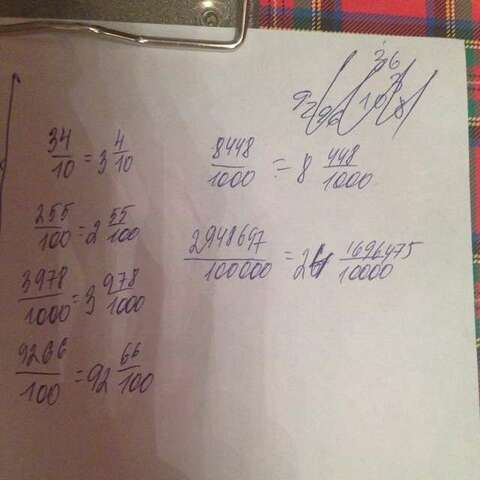 34/10 = 3 4/10
255/100 = 2 55/100
3978/1000 = 3 978/1000
9266/100 = 92 66/100
8448/1000 = 8 448/1000
2948697/100000 = 2
1696475/10000
36